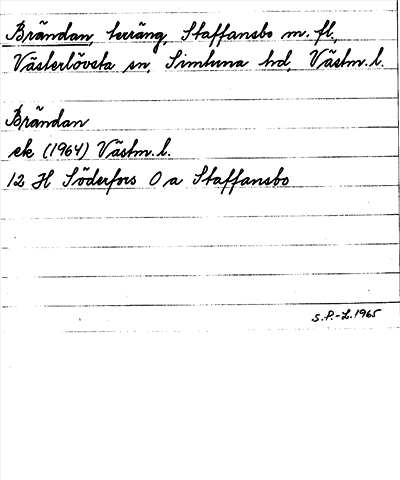 Brändan, terräng, Staffansbo m. fl.,
Västerlövsta sn, Simtuna hd, Västm. l.
Brändan
ek (1964) Västm. l.
12 H Söderfors O a Staffansbo
S. P.-L. 1965